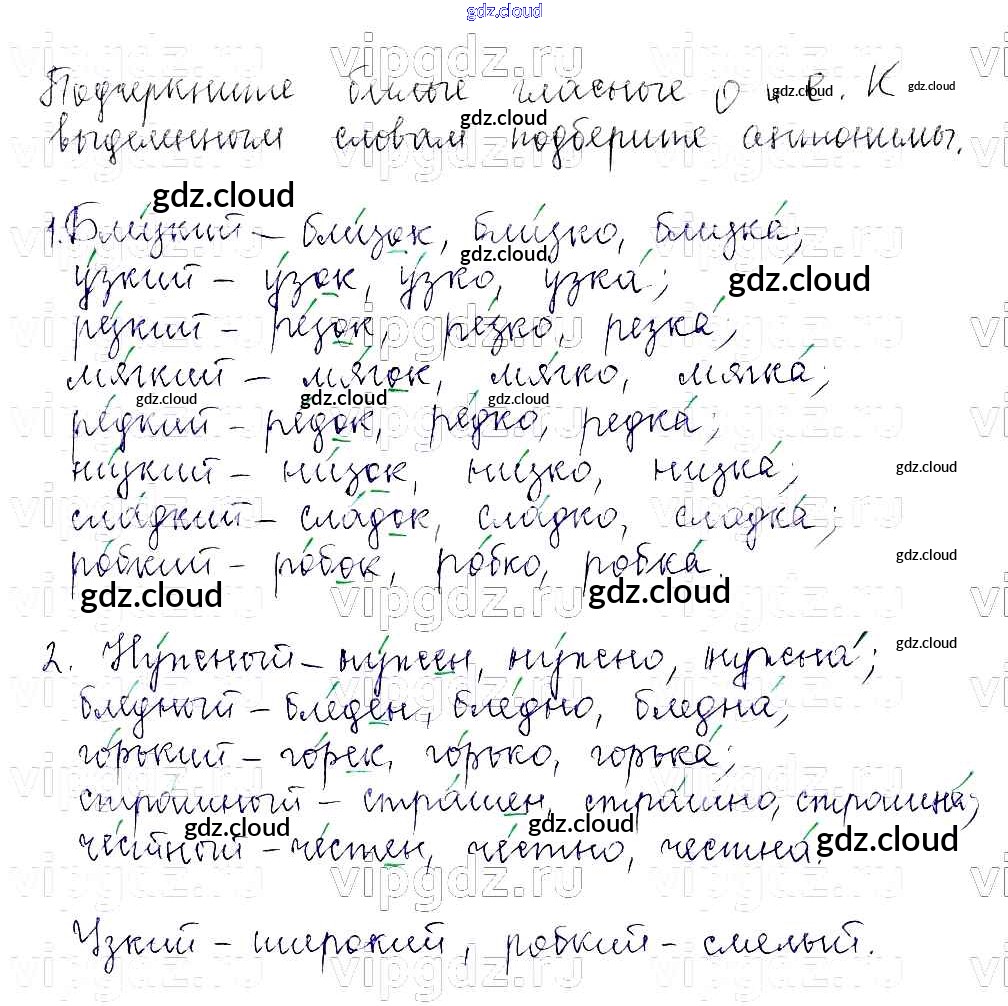 gdz.cloud
Подчеркните беглые гласные о и е. К
выделенным словам подберите антонимы.
1. Бли́зкий – бли́зок, бли́зко, близка́;
у́зкий – у́зок, у́зко, узка́;
ре́зкий – ре́зок, ре́зко, резка́;
мя́гкий – мя́гок, мя́гко, мягка́;
ре́дкий – ре́док, ре́дко, редка́;
ни́зкий – ни́зок, ни́зко, низка́;
сла́дкий – сла́док, сла́дко, сладка́;
ро́бкий – ро́бок, ро́бко, робка́.
2. Ну́жный – ну́жен, ну́жно, нужна́;
бле́дный – бле́ден, бле́дно, бледна́;
го́рький – го́рек, го́рько, горька́;
стра́шный – стра́шен, стра́шно, страшна́;
че́стный – че́стен, че́стно, честна́.
Узкий – широкий, робкий – смелый.